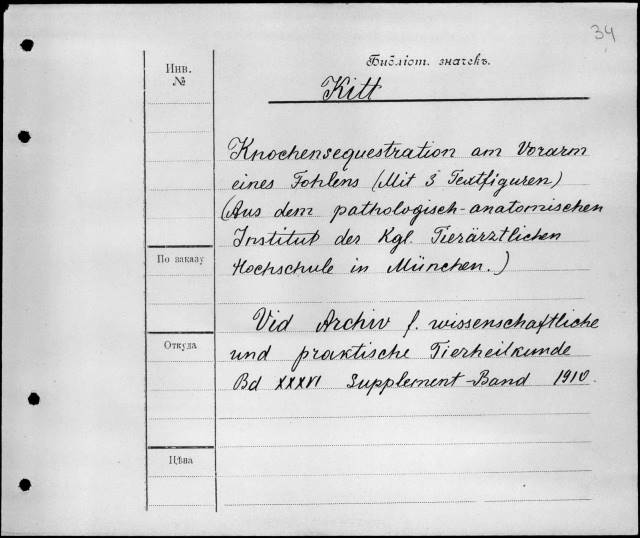 34
Инв.
№
Библіот. значекъ.
Kitt
Knochensequestration am Vorarm
eines Fohlens (Mit 3 Textfiguren)
(Aus dem pathologisch-anatomischen
Institut der Kgl. Tierärztlichen
Hochschule in München.)
По заказу
Vid Archiv f. wissenschaftliche
und praktische Tierheilkunde
Bd XXXVI Supplement-Band 1910.
Откуда
Цѣна